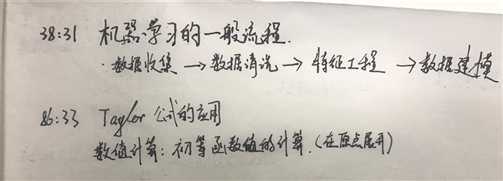 38:31 机器学习的一般流程.
· 数据收集 → 数据清洗 → 特征工程 → 数据建模
86:33 Taylor 公式的应用
数值计算: 初等函数值的计算. (在原点展开)